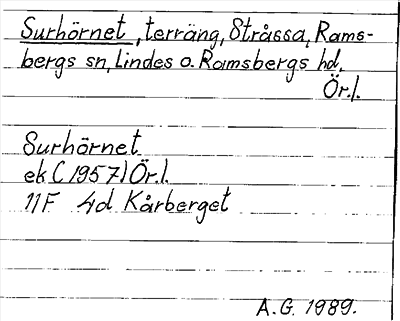 Surhörnet, terräng, Stråssa, Rams-
bergs sn, Lindes o. Ramsbergs hd,
Ör.l.
Surhörnet
ek C 1957) Ör.l.
11F 4d Kårberget
A.G. 1989.